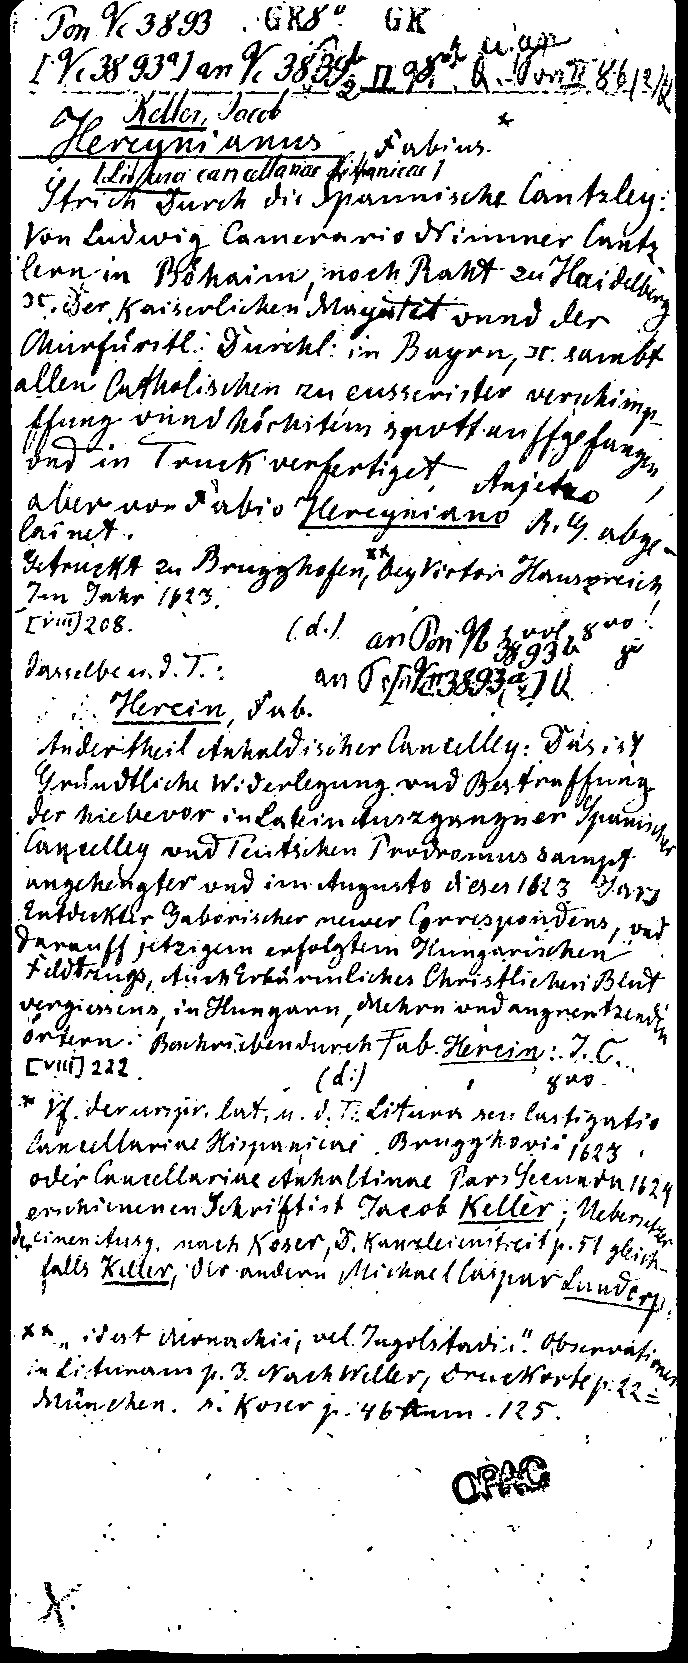 Pon Vc 3893 . GK8° GK
[Vc 3893a] an Vc 3893
Keller, Jacob
Hercynianus, Fabius. *
[Litura cancellariae hispanicae]
Strich Durch die Spannische Cantzley:
Von Ludwig Camerario Nimmer Cantz
lern in Böhaim, noch Raht zu Haidelberg
2c. Der Kaiserlichen Mayestet vnnd der
Churfürstl: Durchl: in Bayrn, 2c. sambt
allen Catholischen zu eusserister verschimp
ffung vnnd höchstem spott auffgefangen,
vnd in Truck verfertiget, Anjetzo
aber von Fabio Hercyniano R. G. abge-
lainet.
Getruckt zu Brugghofen,** bey Victor Hanspreich,
Im Jahr 1623.
[VIII] 208. (d.) 8vo!
an Pon Vc 3893b
Dasselbe u. d. T.:
an Pon [Vc 3893a]
Hercin, Fab.
Ander theil Anhaldischer Cancelley: Das ist
Gründtliche Widerlegung vnd Bestraffung
der hiebevor in Latein Auszgangner Spanischer
Cancelley vnd Teutschen Prodromus sampt
angehengter vnd im Augusto dieses 1623 Jars
Entdeckter Gaborischer newer Correspondens, vnd
darauff jetzigem erfolgtem Hungarischen
Feldtzugs, Auch Erbärmliches Christlichen Blut
vergiessens, in Hungarn, Mehrn vnd angrentzenden
örtern: Beschrieben durch Fab. Hercin: J. C.
[VIII] 222. (d.) 8vo.
* Vf. der urspr. lat. u. d. T.: Litura seu Castigatio
Cancellariae Hispanicae. Brugghovii 1623
oder Cancellariae Anhaltinae Pars Secunda 1624
erschienenen Schrift ist Jacob Keller; Uebersetzer
der einen Ausg. nach Koser, D. Kanzleienstreit p. 51 gleich-
falls Keller, der andern Michael Caspar Lundorp.
** „id est Monachii, vel Ingolstadii". Observationes
in Lituram p. 3. Nach Weller, Druckorte p. 22 =
München. s. Koser p. 46 Anm. 125.
OPAC